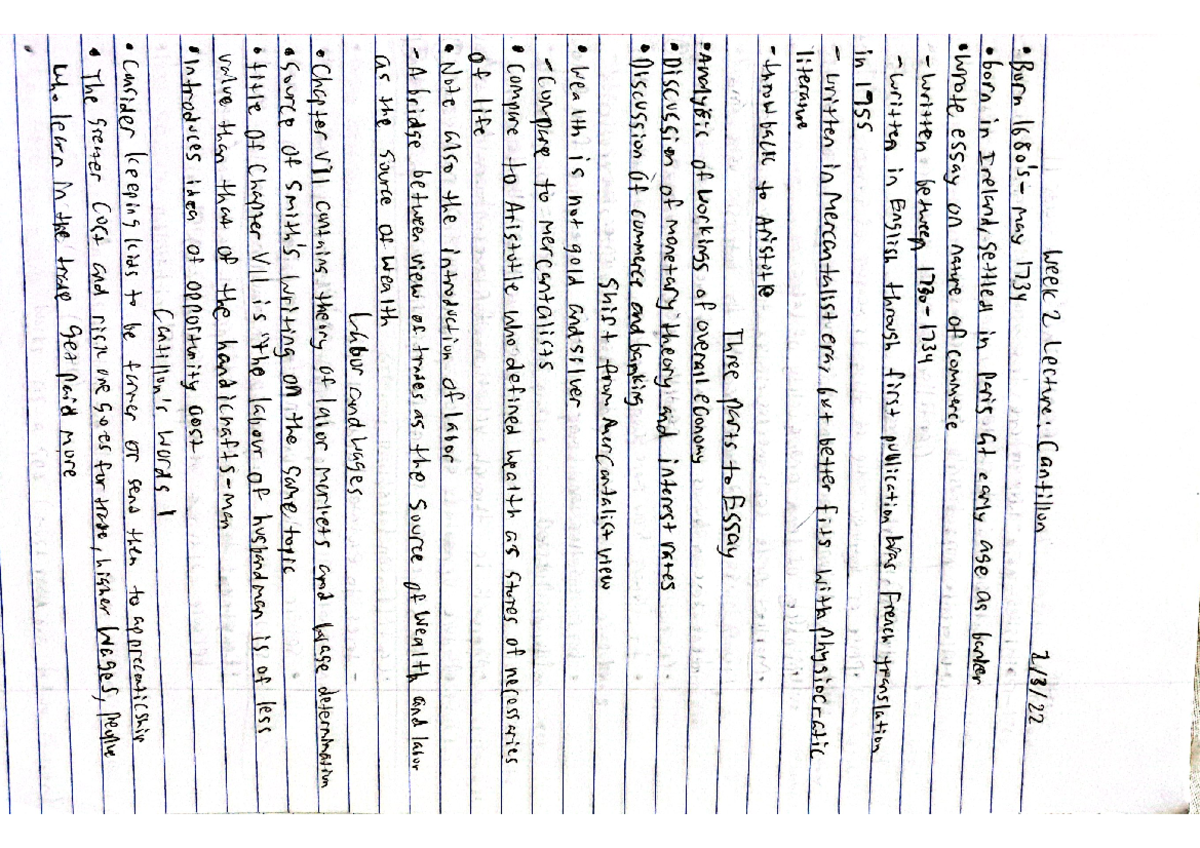 Week 2 Lecture: Cantillon 2/3/22
• Born 1680's - may 1734
• born in Ireland, settled in paris at early age as banker
• Wrote essay on nature of commerce
- written between 1730-1734
- written in English through first publication was French translation
in 1755
- written in Mercantalist era, but better fits with physiocratic
literature
- throwback to Aristotle
Three parts to Essay
• Analysis of workings of overall economy
• Discussion of monetary theory and interest rates
• Discussion of commerce and banking
Shift from Mercantalist view
• Wealth is not gold and silver
- Compare to mercantalists
• Compare to Aristotle who defined wealth as stores of necessaries
of life
• Note also the introduction of labor
- A bridge between view of trades as the source of wealth and labor
as the source of wealth
Labor and wages
• Chapter VII contains theory of labor markets and wage determination
• Source of Smith's writing on the same topic
• title of Chapter VII is "the labour of husbandman is of less
value than that of the handicrafts-man
• Introduces idea of opportunity cost
Cantillon's words 1
• Consider keeping kids to be farmer or send them to apprenticeship
• The greater cost and risk one goes for trade, higher wages, people
who learn in the trade get paid more